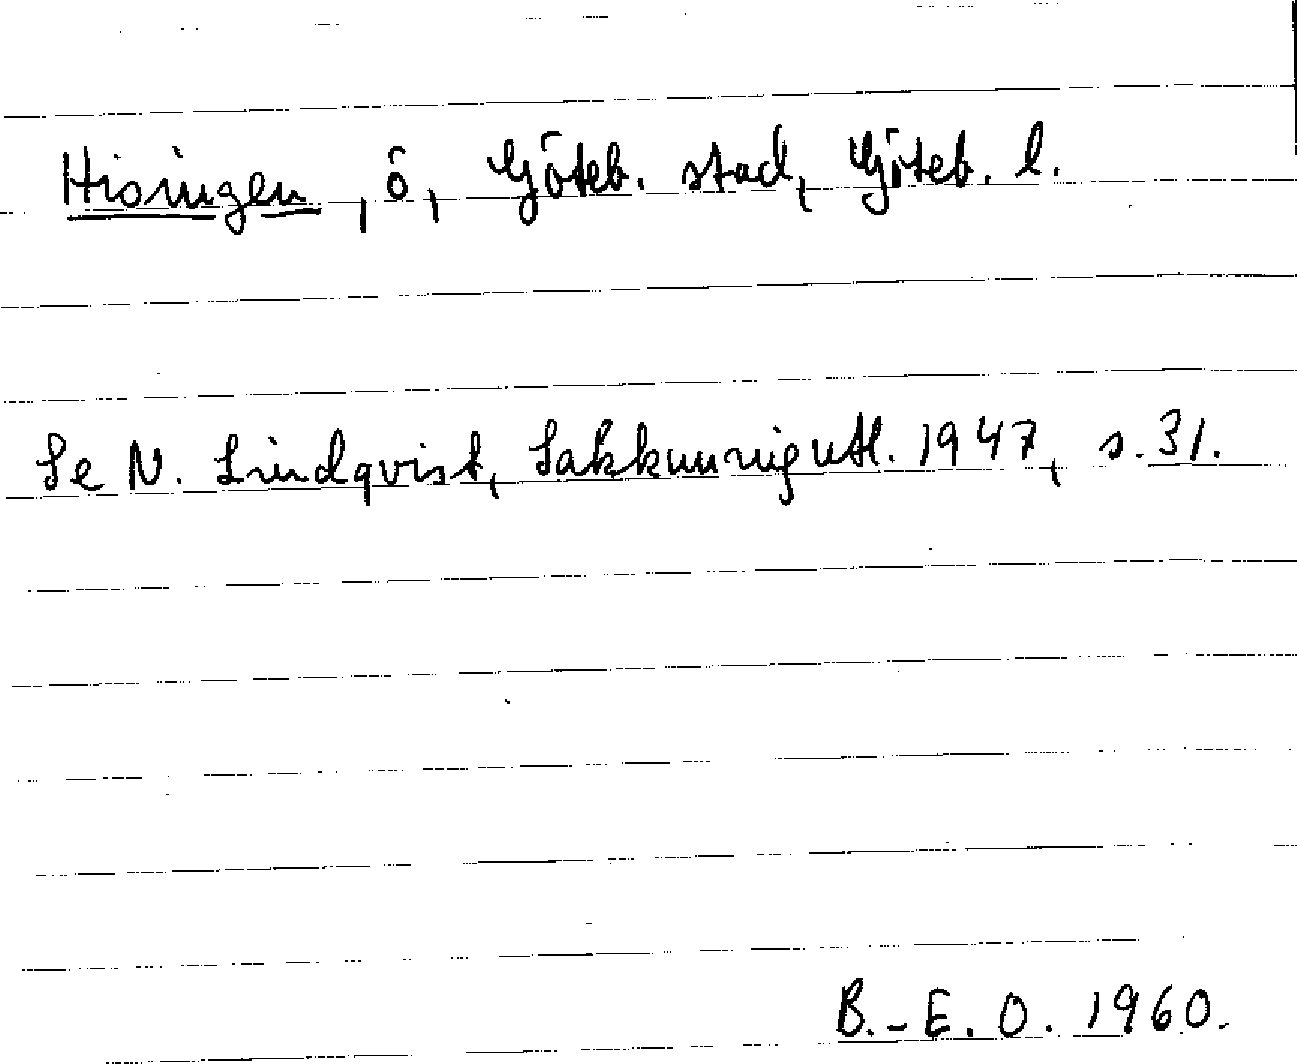 Hisingen, ö, Göteb. stad, Göteb. l.
Se N. Lindqvist, Sakkunnigutl. 1947, s. 31.
B.-E. O. 1960.